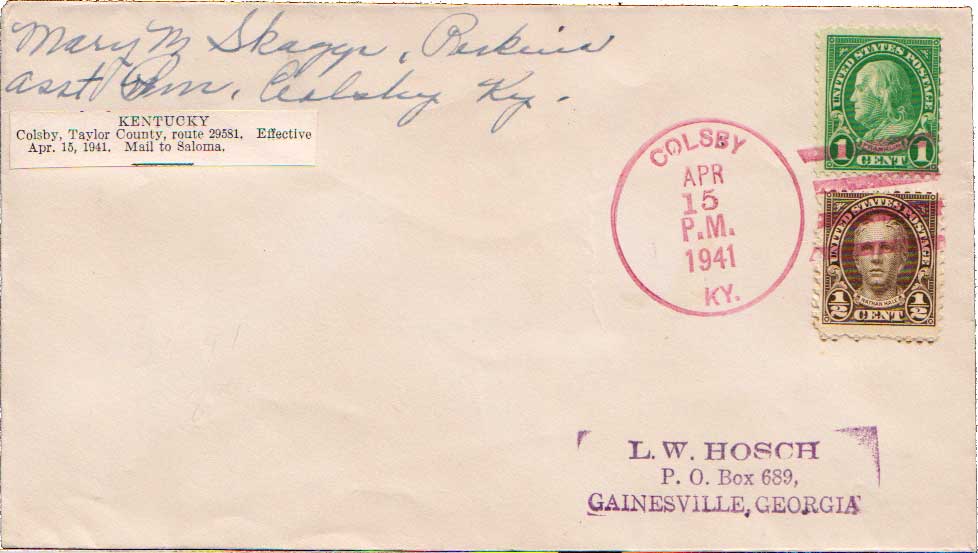 Mary M Skaggs,
Asst Pm, Colsby Ky.
KENTUCKY
Colsby, Taylor County, route 29581. Effective
Apr. 15, 1941. Mail to Saloma.
COLSBY
APR
15
P.M.
1941
KY.
UNITED STATES POSTAGE
FRANKLIN
1 CENT 1
UNITED STATES POSTAGE
NATHAN HALE
1/2 CENT 1/2
L. W. HOSCH
P. O. Box 689,
GAINESVILLE, GEORGIA